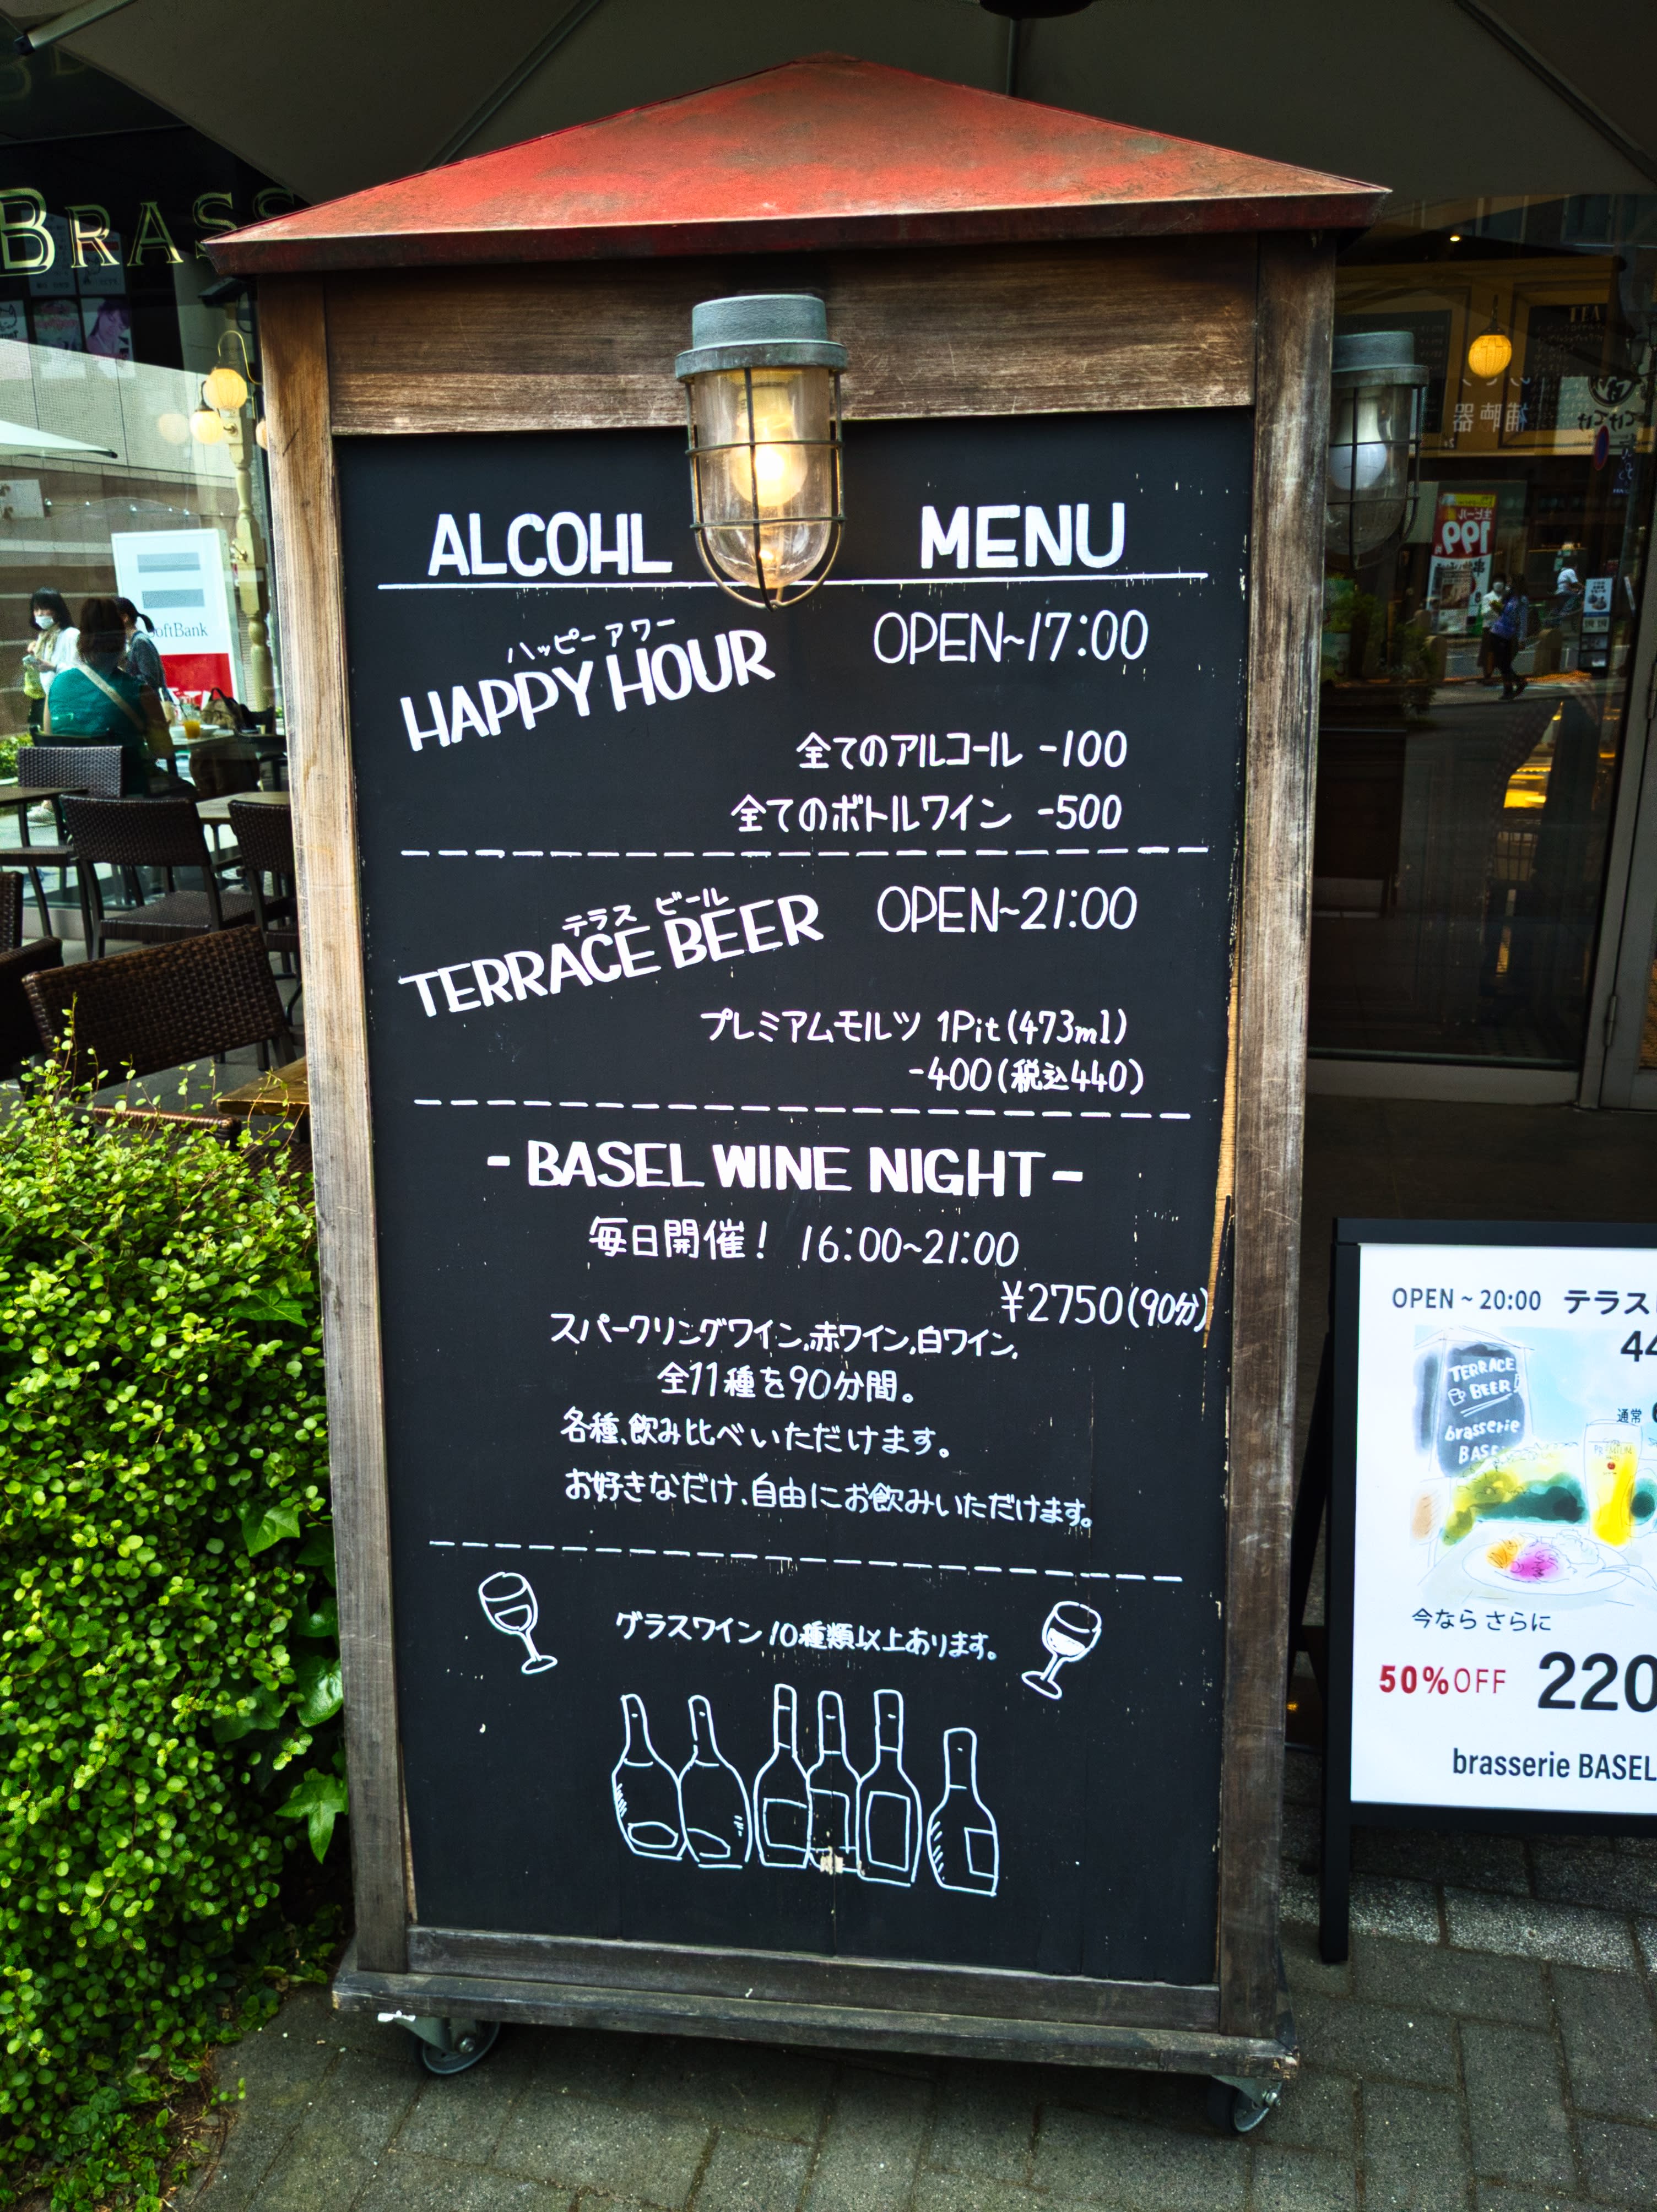 BRASS
ALCOHL MENU
ハッピーアワー
HAPPY HOUR OPEN~17:00
全てのアルコール -100
全てのボトルワイン -500
テラス ビール
TERRACE BEER OPEN~21:00
プレミアムモルツ 1Pit(473ml)
-400(税込440)
-BASEL WINE NIGHT-
毎日開催! 16:00~21:00
¥2750(90分)
スパークリングワイン,赤ワイン,白ワイン,
全11種を90分間。
各種、飲み比べいただけます。
お好きなだけ、自由にお飲みいただけます。
グラスワイン10種類以上あります。
SoftBank
199
補聴器
OPEN ~ 20:00 テラス
44
TERRACE
BEER
brasserie
BASE
通常 6
PREMIUM
今なら さらに
50%OFF 220
brasserie BASEL